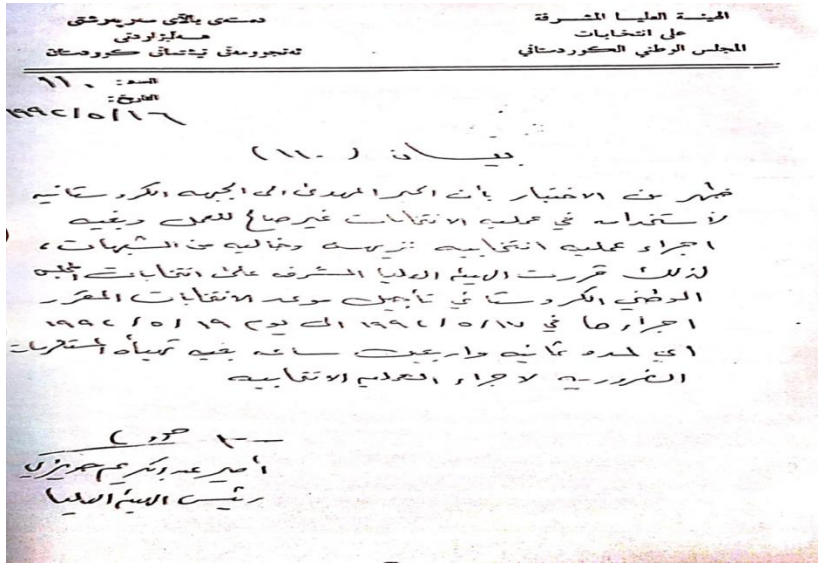 الهيئة العليا المشرفة
على انتخابات
المجلس الوطني الكوردستاني
دەستەی باڵای سەرپەرشتی
هەڵبژاردنی
ئەنجوومەنی نیشتمانی کوردستان
العدد: ١١٠
التاريخ:
١٩٩٢/٥/١٦
بيان (١١٠)
ظهر من الاختبار بأن الحبر المهدى الى الجبهه الكردستانيه
لأستخدامه في عمليه الانتخابات غير صالح للعمل وبغيه
اجراء عمليه انتخابيه نزيهه وخاليه من الشبهات،
لذلك قررت الهيئه العليا المشرفه على انتخابات المجلس
الوطني الكردستاني تأجيل موعد الانتخابات المقرر
اجراءها في ١٩٩٢/٥/١٧ الى يوم ١٩/٥/١٩٩٢
اي لمدة ثمانيه واربعين ساعه بغيه تهيأة المستلزمات
الضروريه لاجراء العمليه الانتخابيه
أمير عبدالكريم حويزي
رئيس الهيئه العليا